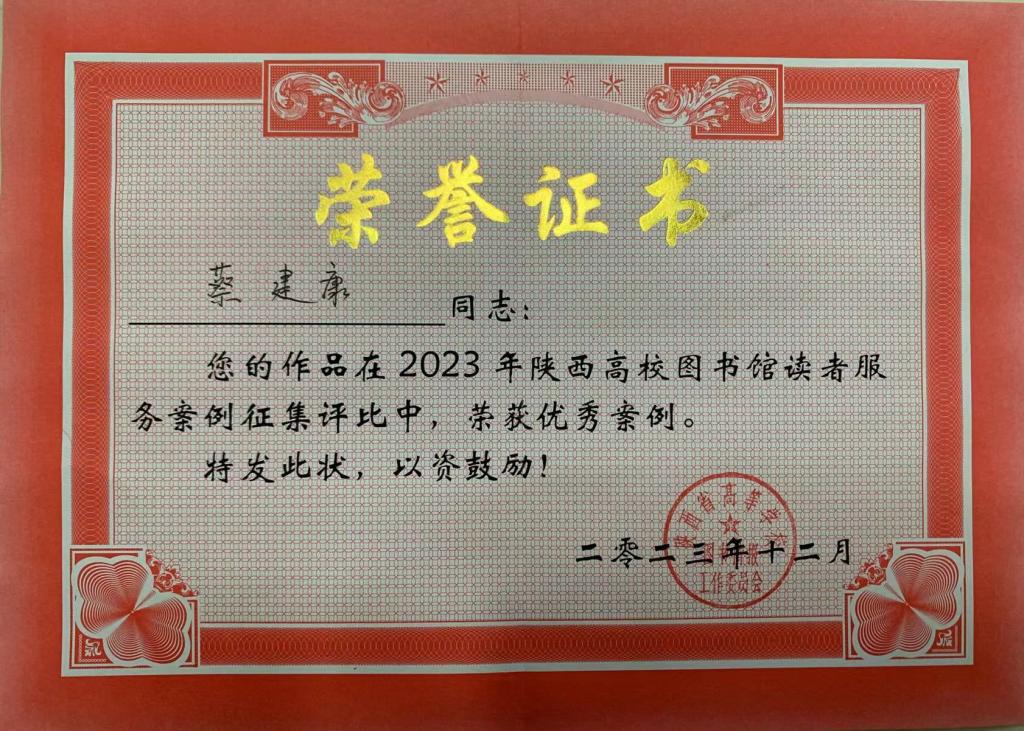 荣誉证书
蔡建康同志：
您的作品在2023年陕西高校图书馆读者服
务案例征集评比中，荣获优秀案例。
特发此状，以资鼓励！
陕西省高等学校
二零二三年十二月
工作委员会